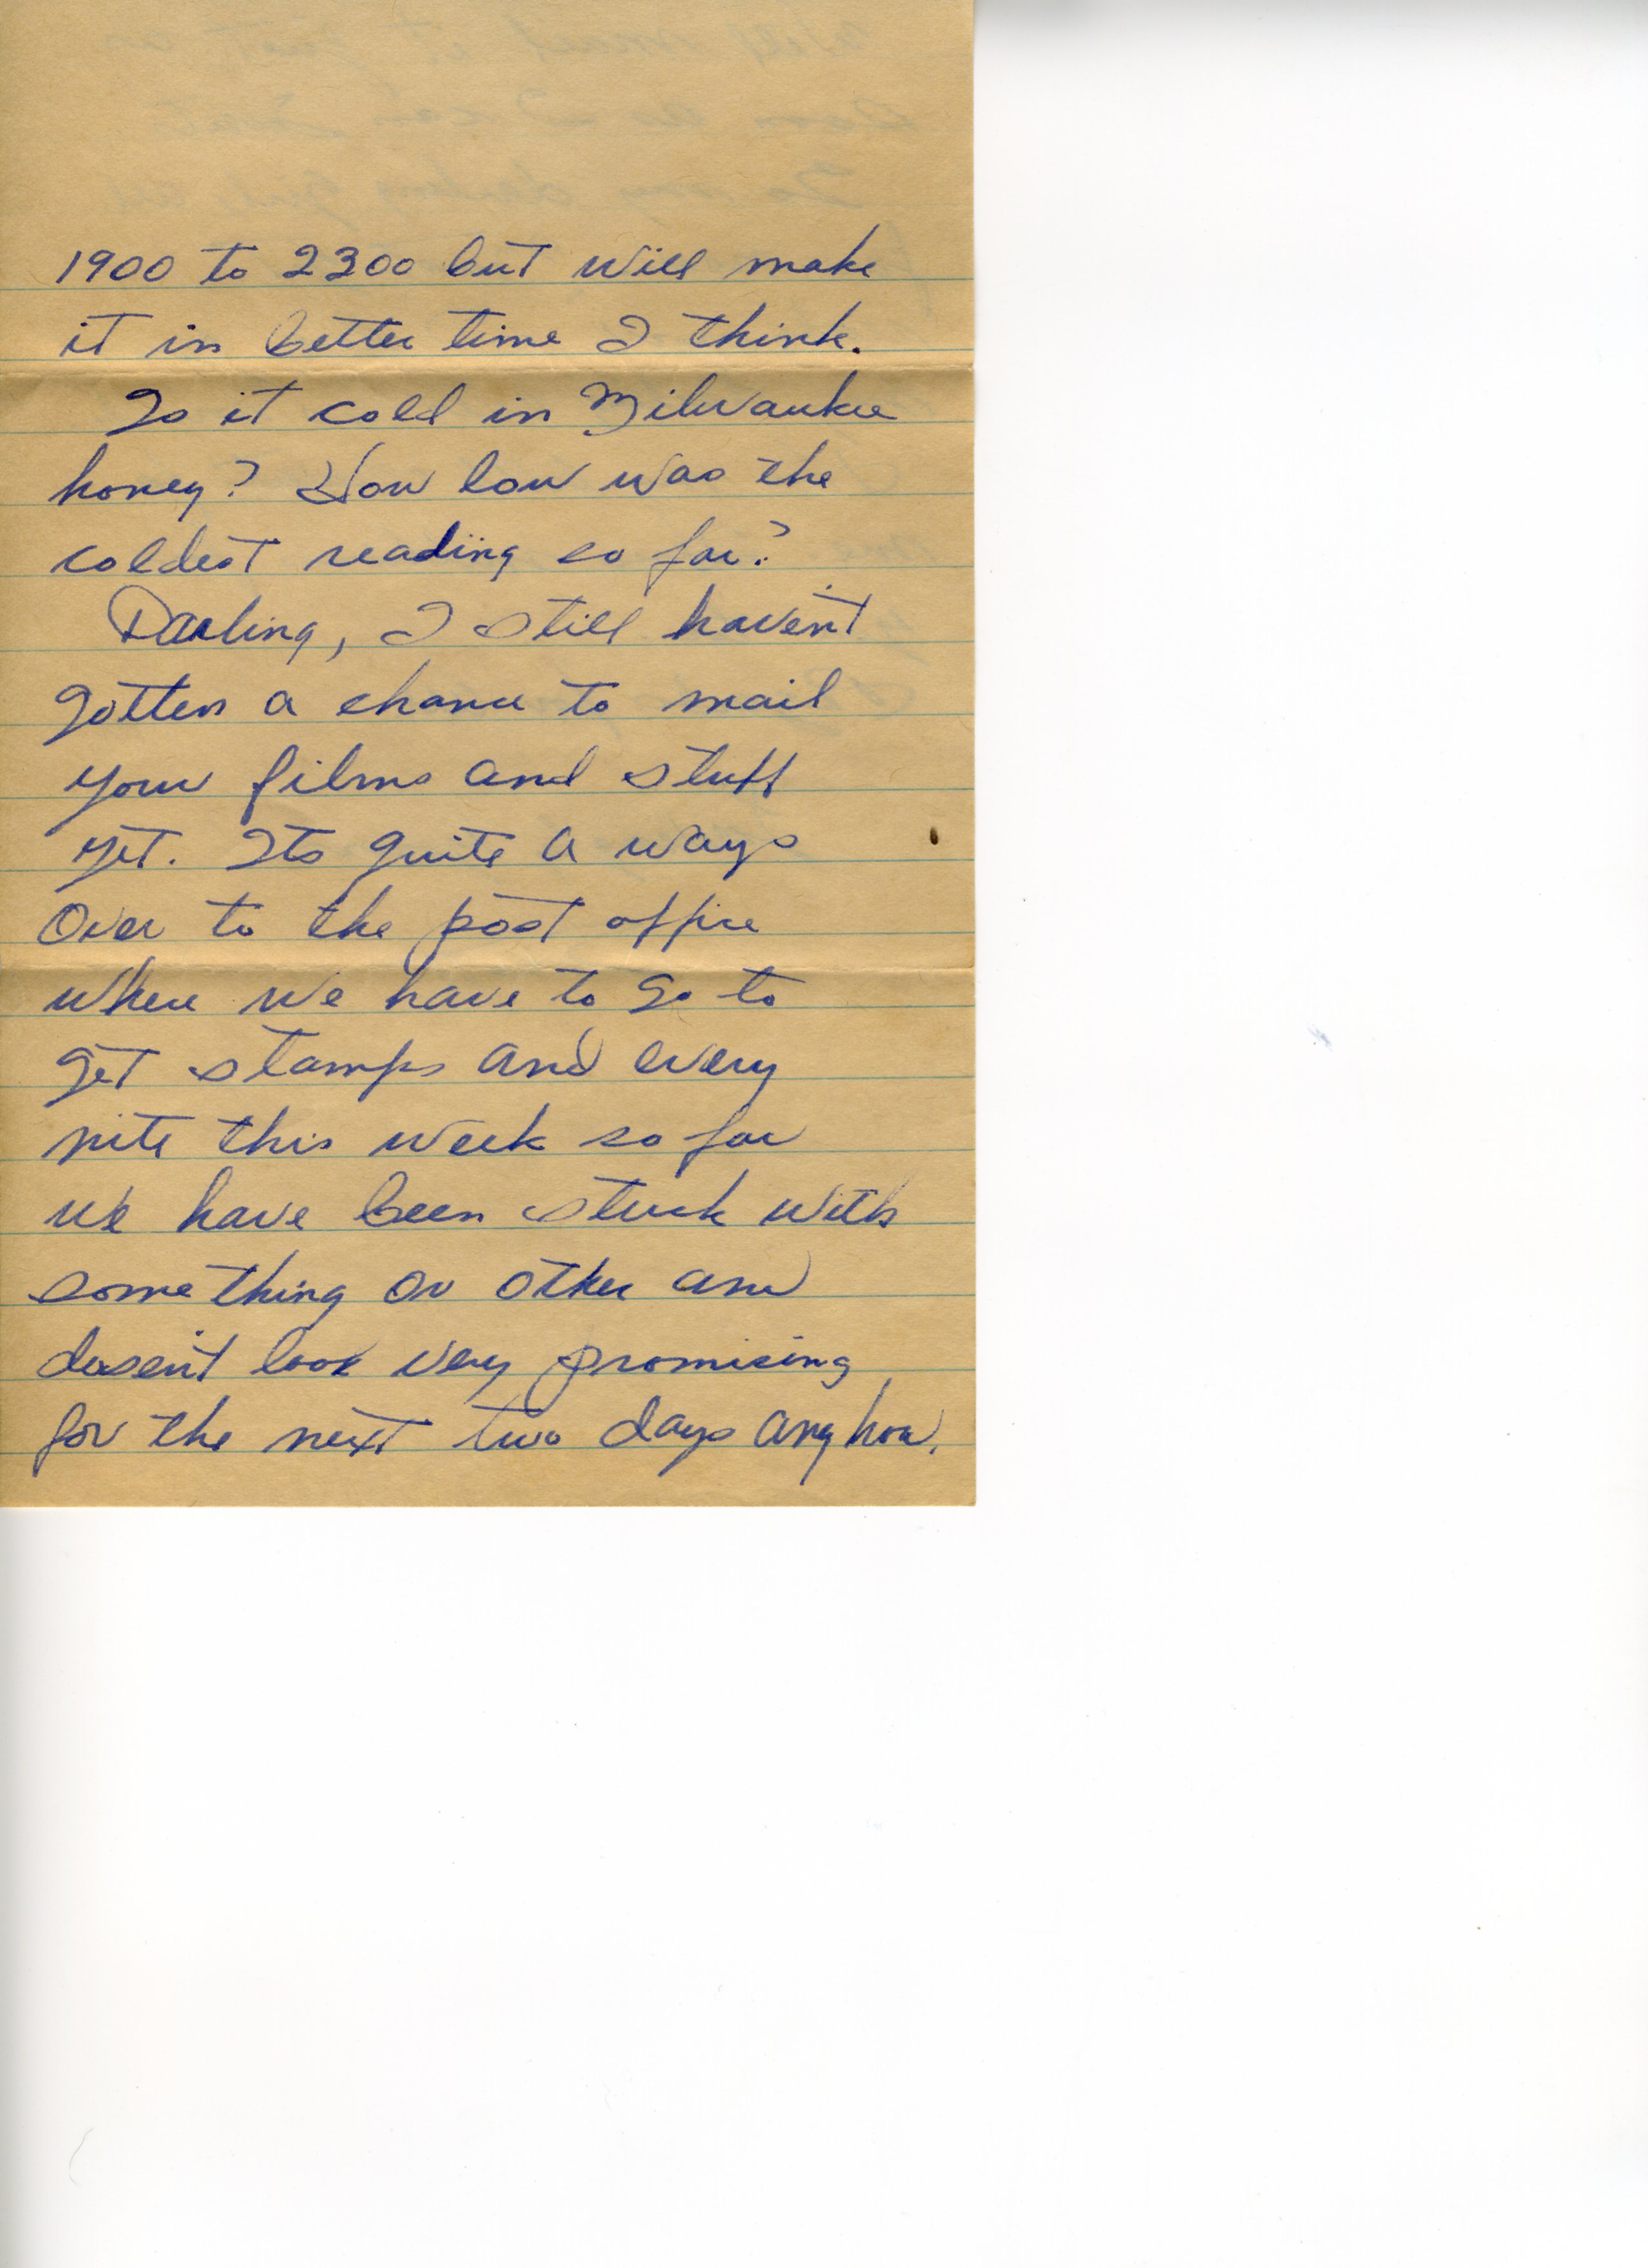 1900 to 2300 but will make
it in better time I think.
Is it cold in Milwaukee
honey? How low was the
coldest reading so far?
Darling, I still haven't
gotten a chance to mail
your films and stuff
yet. Its quite a ways
over to the post office
where we have to go to
get stamps and every
nite this week so far
we have been stuck with
something or other and
doesn't look very promising
for the next two days anyhow.